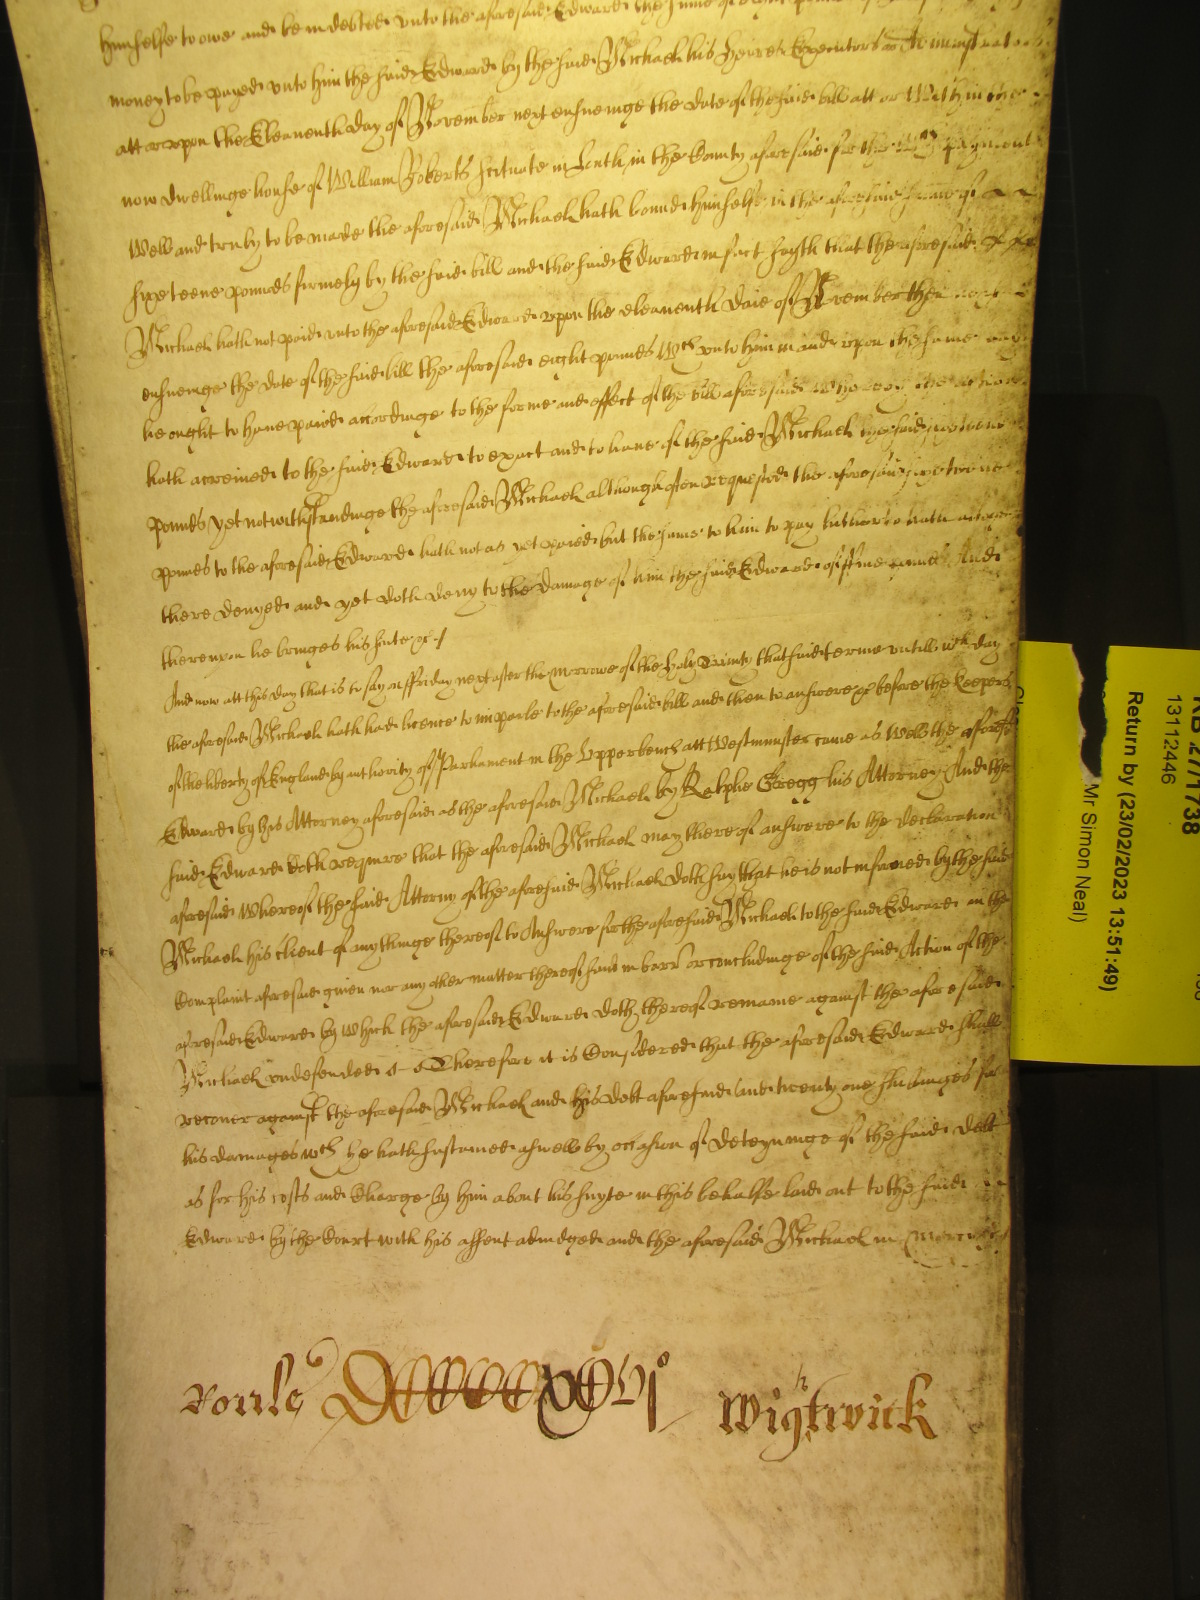 himselfe to owe and be indebted unto the aforesaid Edward the summe of eight pounds of
money to be payed unto him the said Edward by the said Michaell his heires Executors or Administrators
att or upon the Eleaventh day of November next ensueinge the date of the said bill att or within the
now dwellinge house of William Roberts scituate in Louth in the County aforesaid for the wch payment
well and truly to be made the aforesaid Michaell hath bound himselfe in the aforesaid summe of
sixeteene pounds firmely by the said bill and the said Edward in fact sayth that the aforesaid
Michaell hath not paid unto the aforesaid Edward upon the eleaventh daie of November then next
ensueinge the date of the said bill the aforesaid eight pounds wch unto him in and upon the same day
he ought to have payed accordinge to the forme and effect of the bill aforesaid whereby the action
hath accrewed to the said Edward to exact and to have of the said Michaell the said sixteene
pounds yet notwithstandinge the aforesaid Michaell although often requested the aforesaid sixeteene
pounds to the aforesaid Edward hath not as yet payed but the same to him to pay hitherto hath altogether
there denyed and yet doth deny to the damage of him the said Edward of five pounds And
thereupon he bringes his suite &c
And now att this day that is to say on ffriday next after the morrowe of the holy Trinity that said terme untill wch day
the aforesaid Michaell hath had licence to imparle to the aforesaid bill and then to answere &c before the keepers
of the liberty of England by authority of Parliament in the Upperbench att Westminster came as well the aforesd
Edward by his Attorney aforesaid as the aforesaid Michaell by Ralphe Gregg his Attorney And the
said Edward doth require that the aforesaid Michaell may thereof answere to the declaration
aforesaid Whereof the said Attorny of the aforesaid Michaell doth say that he is not informed by the said
Michaell his client of anythinge thereof to Answere for the aforesaid Michaell to the said Edward in the
Complaint aforesaid given nor any other matter thereof saith in barr or concludinge of the said Action of the
aforesaid Edward by which the aforesaid Edward doth thereof remaine against the aforesaid
Michaell undefended Therefore it is Considered that the aforesaid Edward shall
recover against the aforesaid Michaell and his debt aforesaid and twenty one shillinges for
his damages wch he hath sustained aswell by occasion of deteyninge of the said debt
as for his costs and Charge by him about his suyte in this behalfe laid out to the said
Edward by the Court with his assent adiudged and the aforesaid Michaell in mercy &c
Wightwick
KB 27/1738
13112446
Return by (23/02/2023 13:51:49)
Mr Simon Neal)